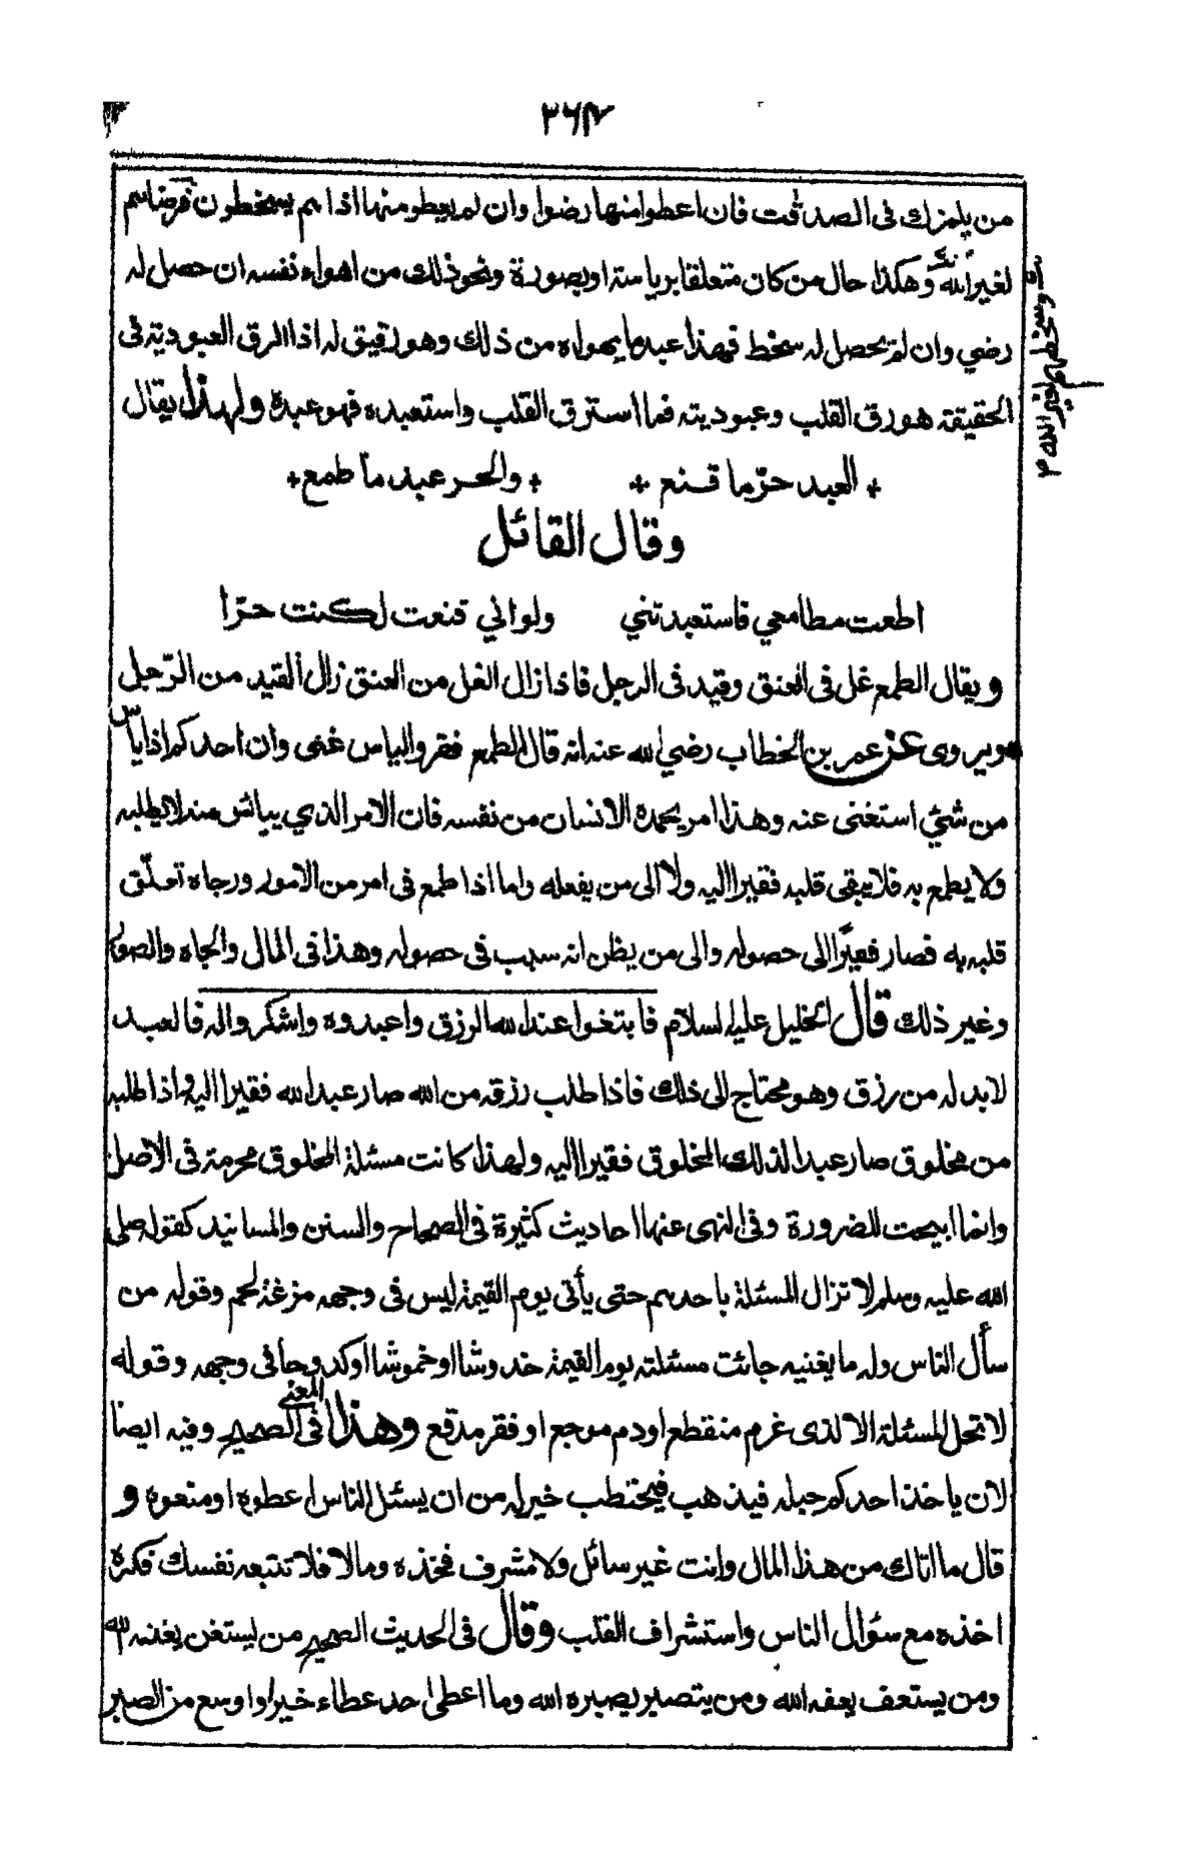 من يلمزك فى الصدقت فان اعطوا منها رضوا وان لم يعطو منها اذا هم يسخطون فرضاهم
لغير الله وهكذا حال من كان متعلقا برياسة او بصورة ونحو ذلك من اهواء نفسه ان حصل له
رضي وان لم يحصل له سخط فهذا عبد ما يهواه من ذلك وهو رقيق له اذا الرق العبودية فى
الحقيقة هو رق القلب وعبوديته فما استرق القلب واستعبده فهو عبده ولهذا يقال
العبد حرّ ما قنع والحر عبد ما طمع
وقال القائل
اطعت مطامعي فاستعبدتني ولو اني قنعت لكنت حرّا
ويقال الطمع غل فى العنق وقيد فى الرجل فاذا زال الغل من العنق زال القيد من الرّجل
ويروى عن عمر بن الخطاب رضي الله عنه انه قال الطمع فقر والياس غنى وان احدكم اذا يأس
من شئ استغنى عنه وهذا امر يجده الانسان من نفسه فان الامر الذي ييائس منه لا يطلبه
ولا يطمع به فلا يبقى قلبه فقيرا اليه ولا الى من يفعله واما اذا طمع فى امر من الامور ورجاه تعلّق
قلبه به فصار فقيرًا الى حصوله والى من يظن انه سبب فى حصوله وهذا فى المال والجاه والصور
وغير ذلك قال الخليل عليه السلام فابتغوا عند الله الرزق واعبدوه واشكروا له فالعبد
لا بد له من رزق وهو محتاج الى ذلك فاذا طلب رزقه من الله صار عبدا لله فقيرا اليه واذا طلبه
من مخلوق صار عبدا لذلك المخلوق فقيرا اليه ولهذا كانت مسئلة المخلوق محرمة فى الاصل
وانما ابيحت للضرورة وفى النهى عنها احاديث كثيرة فى الصحاح والسنن والمسانيد كقوله صلى
الله عليه وسلم لا تزال المسئلة باحدهم حتى يأتى يوم القيمة ليس فى وجهه مزغة لحم وقوله من
سأل الناس وله ما يغنيه جائت مسئلته يوم القيمة خدوشا او خموشا او كدوحا فى وجهه وقوله
لا تحل المسئلة الا لذى غرم منقطع او دم موجع او فقر مدقع وهذا المعنى فى الصحيح وفيه ايضا
لان ياخذ احدكم حبله فيذهب فيحتطب خير له من ان يسئل الناس اعطوه او منعوه و
قال ما اتاك من هذا المال وانت غير سائل ولا مشرف فخذه وما لا فلا تتبعه نفسك فكره
اخذه مع سؤال الناس واستشراف القلب وقال فى الحديث الصحيح من يستغن يغنه الله
ومن يستعف يعفه الله ومن يتصبر يصبره الله وما اعطى احد عطاء خيرا واوسع من الصبر
وسخطهم لغير الله